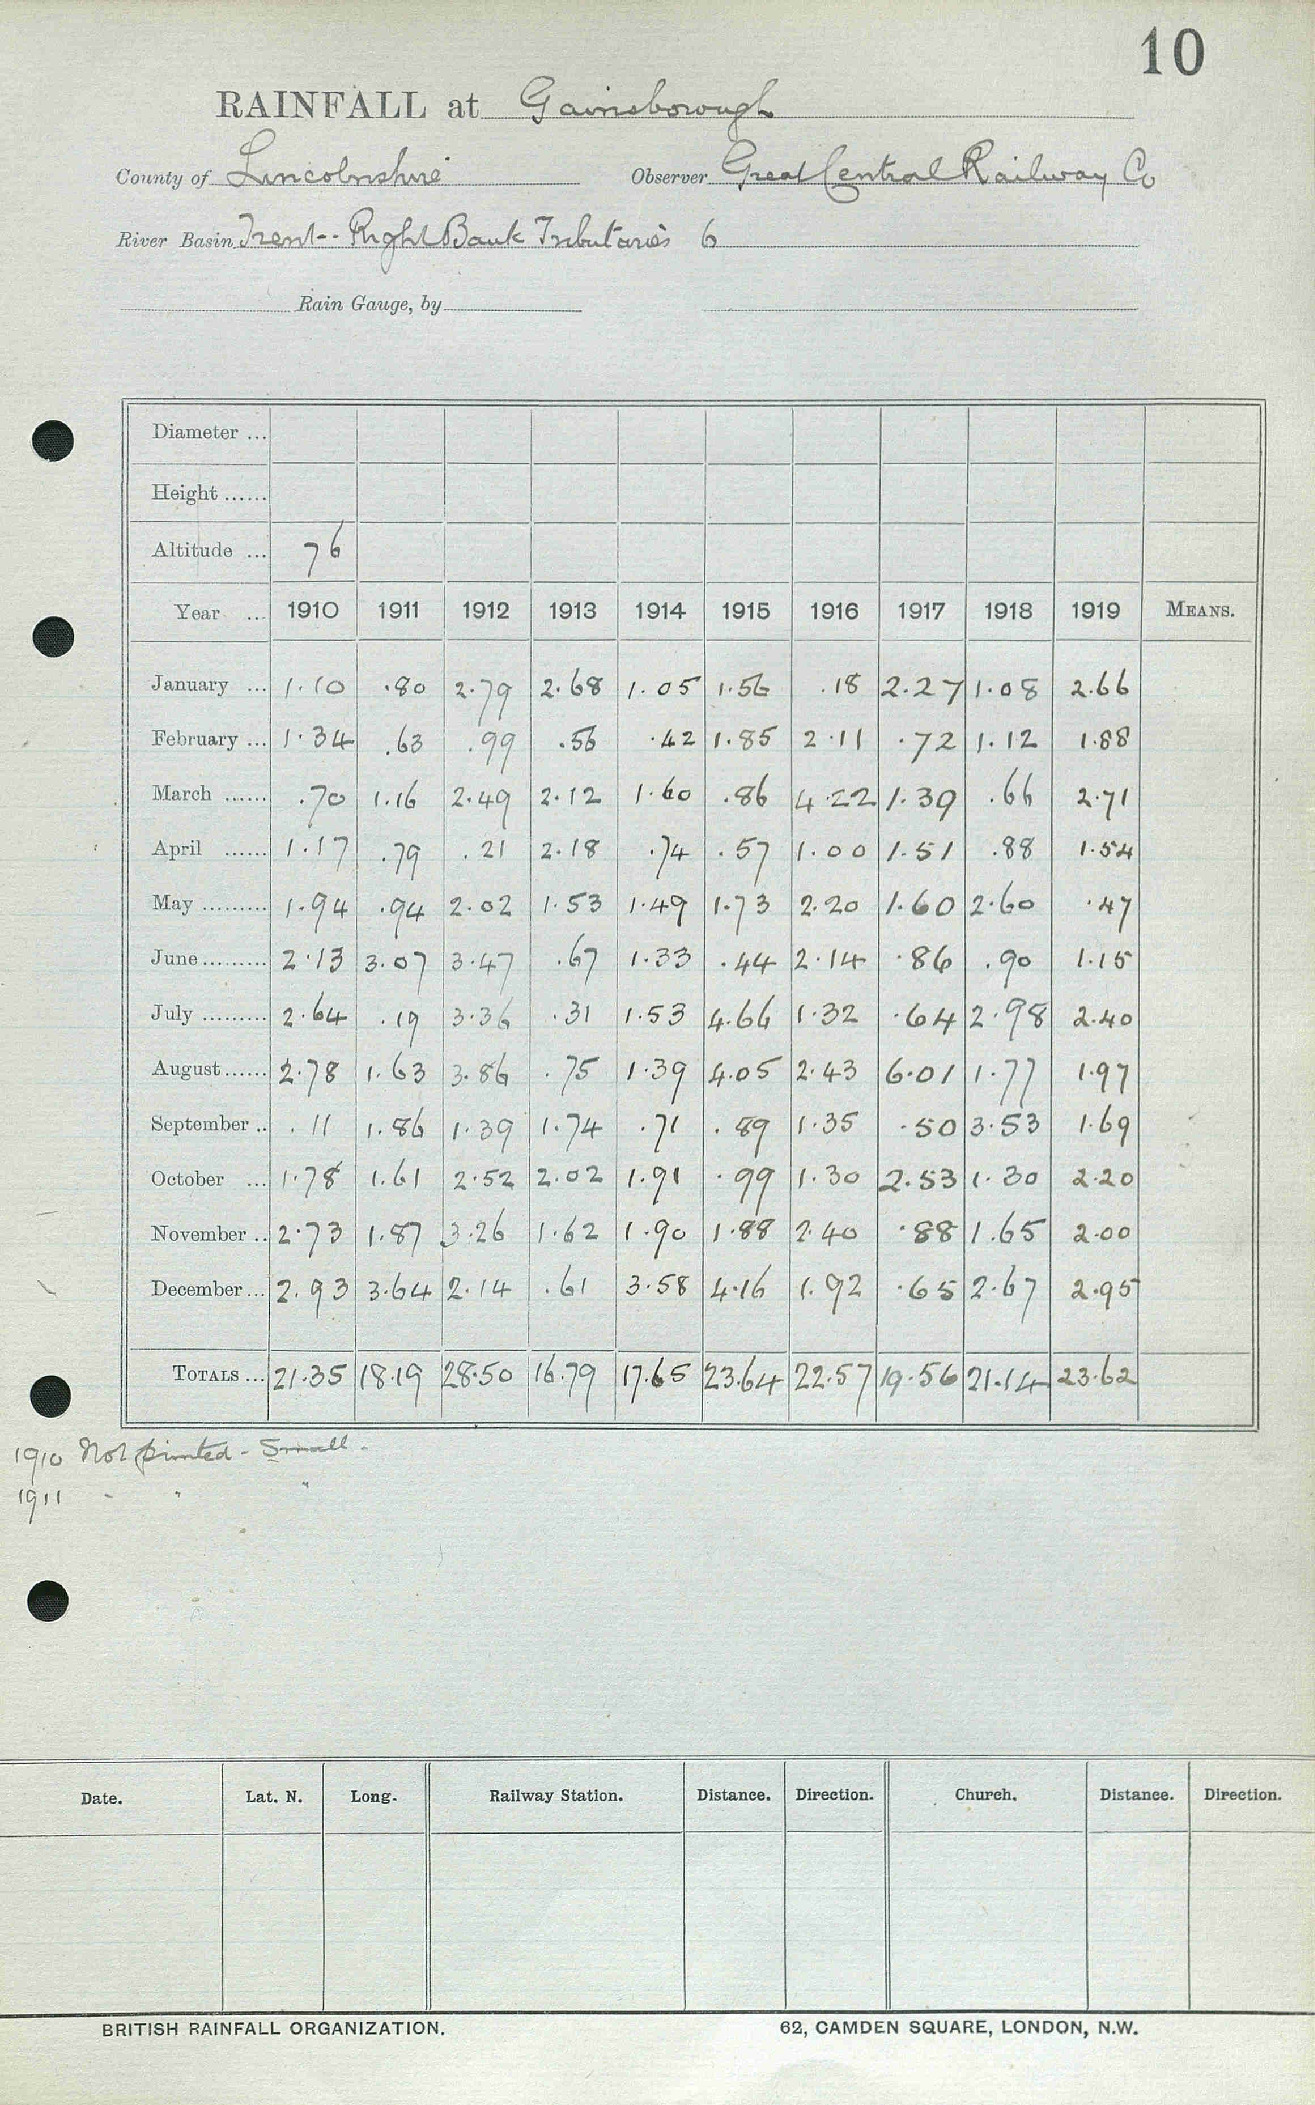 10
RAINFALL at Gainsborough
County of Lincolnshire Observer Great Central Railway Co
River Basin Trent-- Right Bank Tributaries 6
Rain Gauge, by
Diameter ...
Height ......
Altitude ... 76
Year ... 1910 1911 1912 1913 1914 1915 1916 1917 1918 1919 MEANS.
January ... 1.10 .80 2.79 2.68 1.05 1.56 .18 2.27 1.08 2.66
February ... 1.34 .63 .99 .56 .42 1.85 2.11 .72 1.12 1.88
March ...... .70 1.16 2.49 2.12 1.60 .86 4.22 1.39 .66 2.71
April ...... 1.17 .79 .21 2.18 .74 .57 1.00 1.51 .88 1.54
May ......... 1.94 .94 2.02 1.53 1.49 1.73 2.20 1.60 2.60 .47
June ......... 2.13 3.07 3.47 .67 1.33 .44 2.14 .86 .90 1.15
July ......... 2.64 .19 3.36 .31 1.53 4.66 1.32 .64 2.98 2.40
August ...... 2.78 1.63 3.86 .75 1.39 4.05 2.43 6.01 1.77 1.97
September .. .11 1.86 1.39 1.74 .71 .89 1.35 .50 3.53 1.69
October ... 1.78 1.61 2.52 2.02 1.91 .99 1.30 2.53 1.30 2.20
November .. 2.73 1.87 3.26 1.62 1.90 1.88 2.40 .88 1.65 2.00
December ... 2.93 3.64 2.14 .61 3.58 4.16 1.92 .65 2.67 2.95
TOTALS ... 21.35 18.19 28.50 16.79 17.65 23.64 22.57 19.56 21.14 23.62
1910 Not printed - Small -
1911 - " "
Date. Lat. N. Long. Railway Station. Distance. Direction. Church. Distance. Direction.
BRITISH RAINFALL ORGANIZATION. 62, CAMDEN SQUARE, LONDON, N.W.